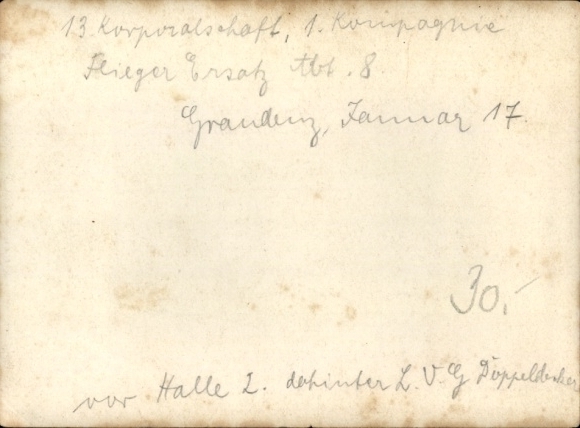 13 Korporalschaft, 1. Kompagnie
Flieger Ersatz Abt. 8.
Graudenz, Januar 17.
30,-
vor Halle 2. dahinter L. V. G Doppeldecker